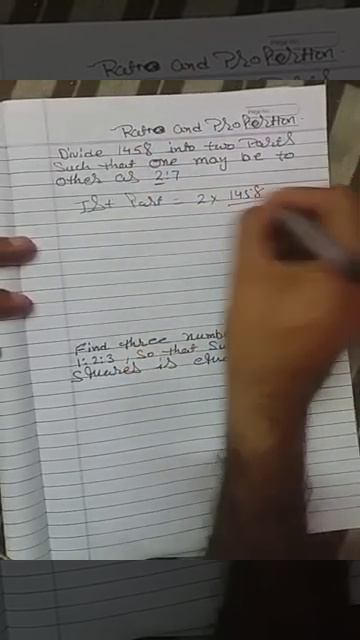 Ratio and Proportion
Ratio and Proportion
Divide 1458 into two Parts
Such that one may be to
other as 2:7
Ist Part = 2 × 1458
Find three numb
1:2:3, So that Su
squares is equ